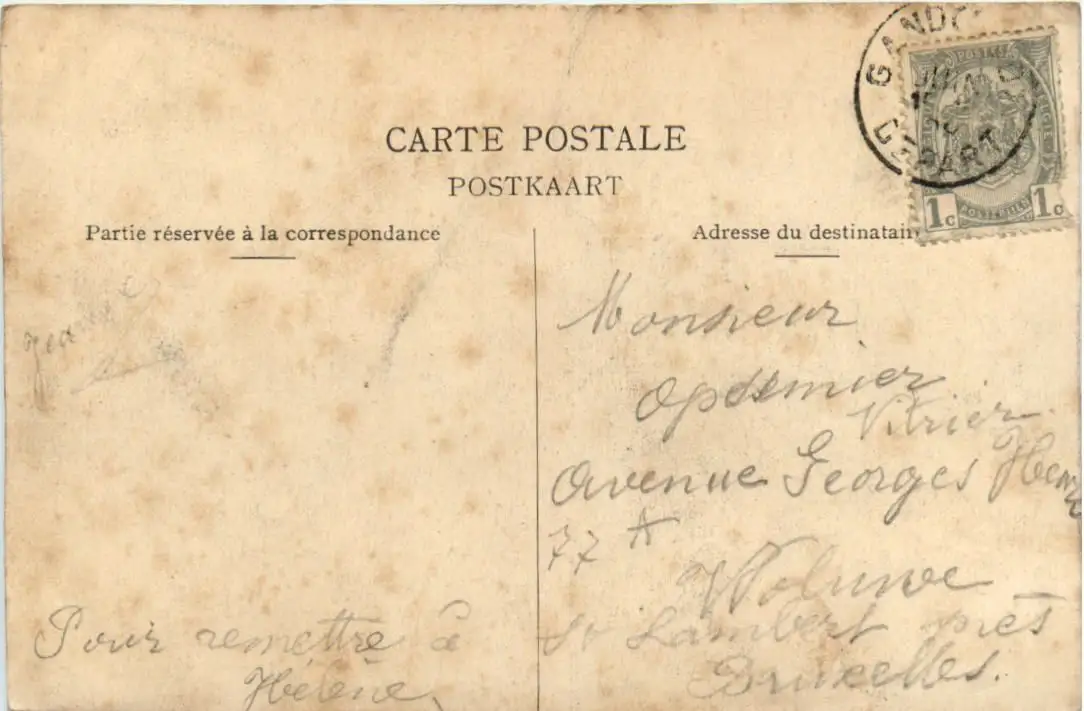 CARTE POSTALE
POSTKAART
Partie réservée à la correspondance
Adresse du destinatai
GAND
DEPART
POSTES
POSTERIJEN
1c 1c
Jeanne
Pour remettre à
Hélène
Monsieur
Opdemier
Vitrier
Avenue Georges Henri
77 A
Woluwe
St Lambert près
Bruxelles.